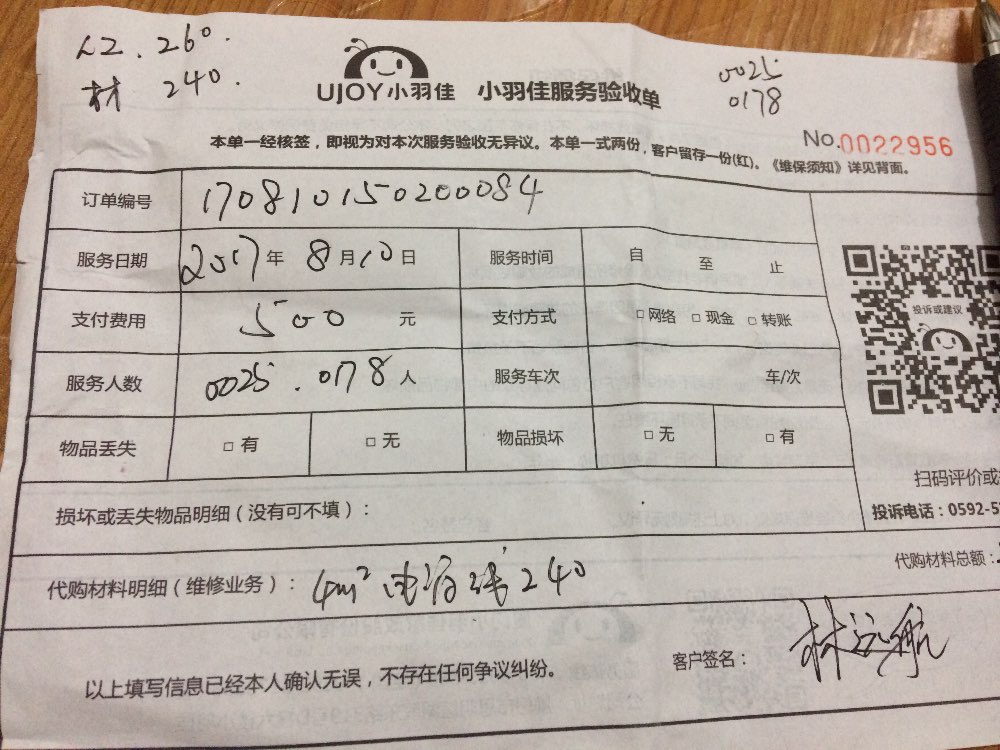 人工.260.
材 240.
UJOY小羽佳 小羽佳服务验收单
0025
0178
No.0022956
本单一经核签，即视为对本次服务验收无异议。本单一式两份，客户留存一份(红)。《维保须知》详见背面。
订单编号 170810150200084
服务日期 2017年 8月10日 服务时间 自 至 止
支付费用 500 元 支付方式 □网络 □现金 □转账
投诉或建议
服务人数 0025.0178人 服务车次 车/次
物品丢失 □有 □无 物品损坏 □无 □有
扫码评价或
损坏或丢失物品明细（没有可不填）：
投诉电话：0592-5
代购材料明细（维修业务）：4m² 电源线240
代购材料总额：
客户签名：林远航
以上填写信息已经本人确认无误，不存在任何争议纠纷。